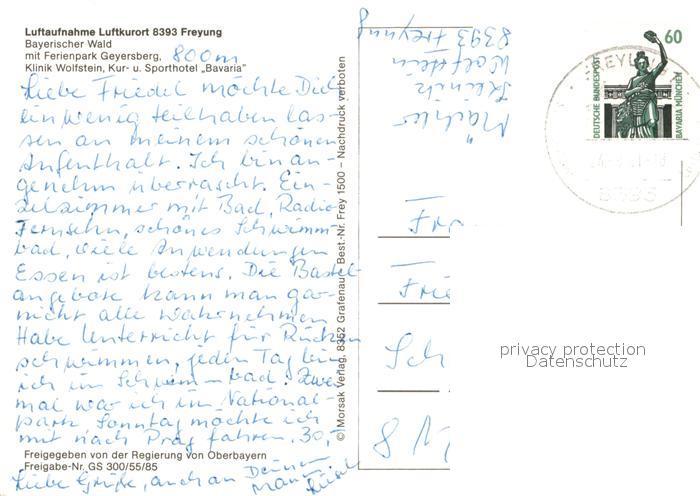 Luftaufnahme Luftkurort 8393 Freyung
Bayerischer Wald
mit Ferienpark Geyersberg, 800m
Klinik Wolfstein, Kur- u. Sporthotel „Bavaria"
Liebe Friedel möchte Dich
ein wenig teilhaben las-
sen an meinem schönen
Aufenthalt. Ich bin an-
genehm überrascht. Ein-
zelzimmer mit Bad, Radio
Fernsehn, schönes Schwimm-
bad, viele Anwendungen
Essen ist bestens. Die Bastel
angebote kann man gar
nicht alle wahrnehmen
Habe Unterricht für Rücken
schwimmen, jeden Tag bin
ich im Schwimm-bad. Zwei
mal war ich im National-
park. Sonntag möchte ich
mit nach Prag fahren. 30,-
Freigegeben von der Regierung von Oberbayern
Freigabe-Nr. GS 300/55/85
Liebe Grüße, auch an Deinen
Mann
© Morsak Verlag, 8352 Grafenau – Best.-Nr. Frey 1500 – Nachdruck verboten
Klinik
Wolfstein
8393 Freyung
60
DEUTSCHE BUNDESPOST
BAVARIA MÜNCHEN
FREYUNG
8393
Fr
Frie
Sch
8
privacy protection
Datenschutz